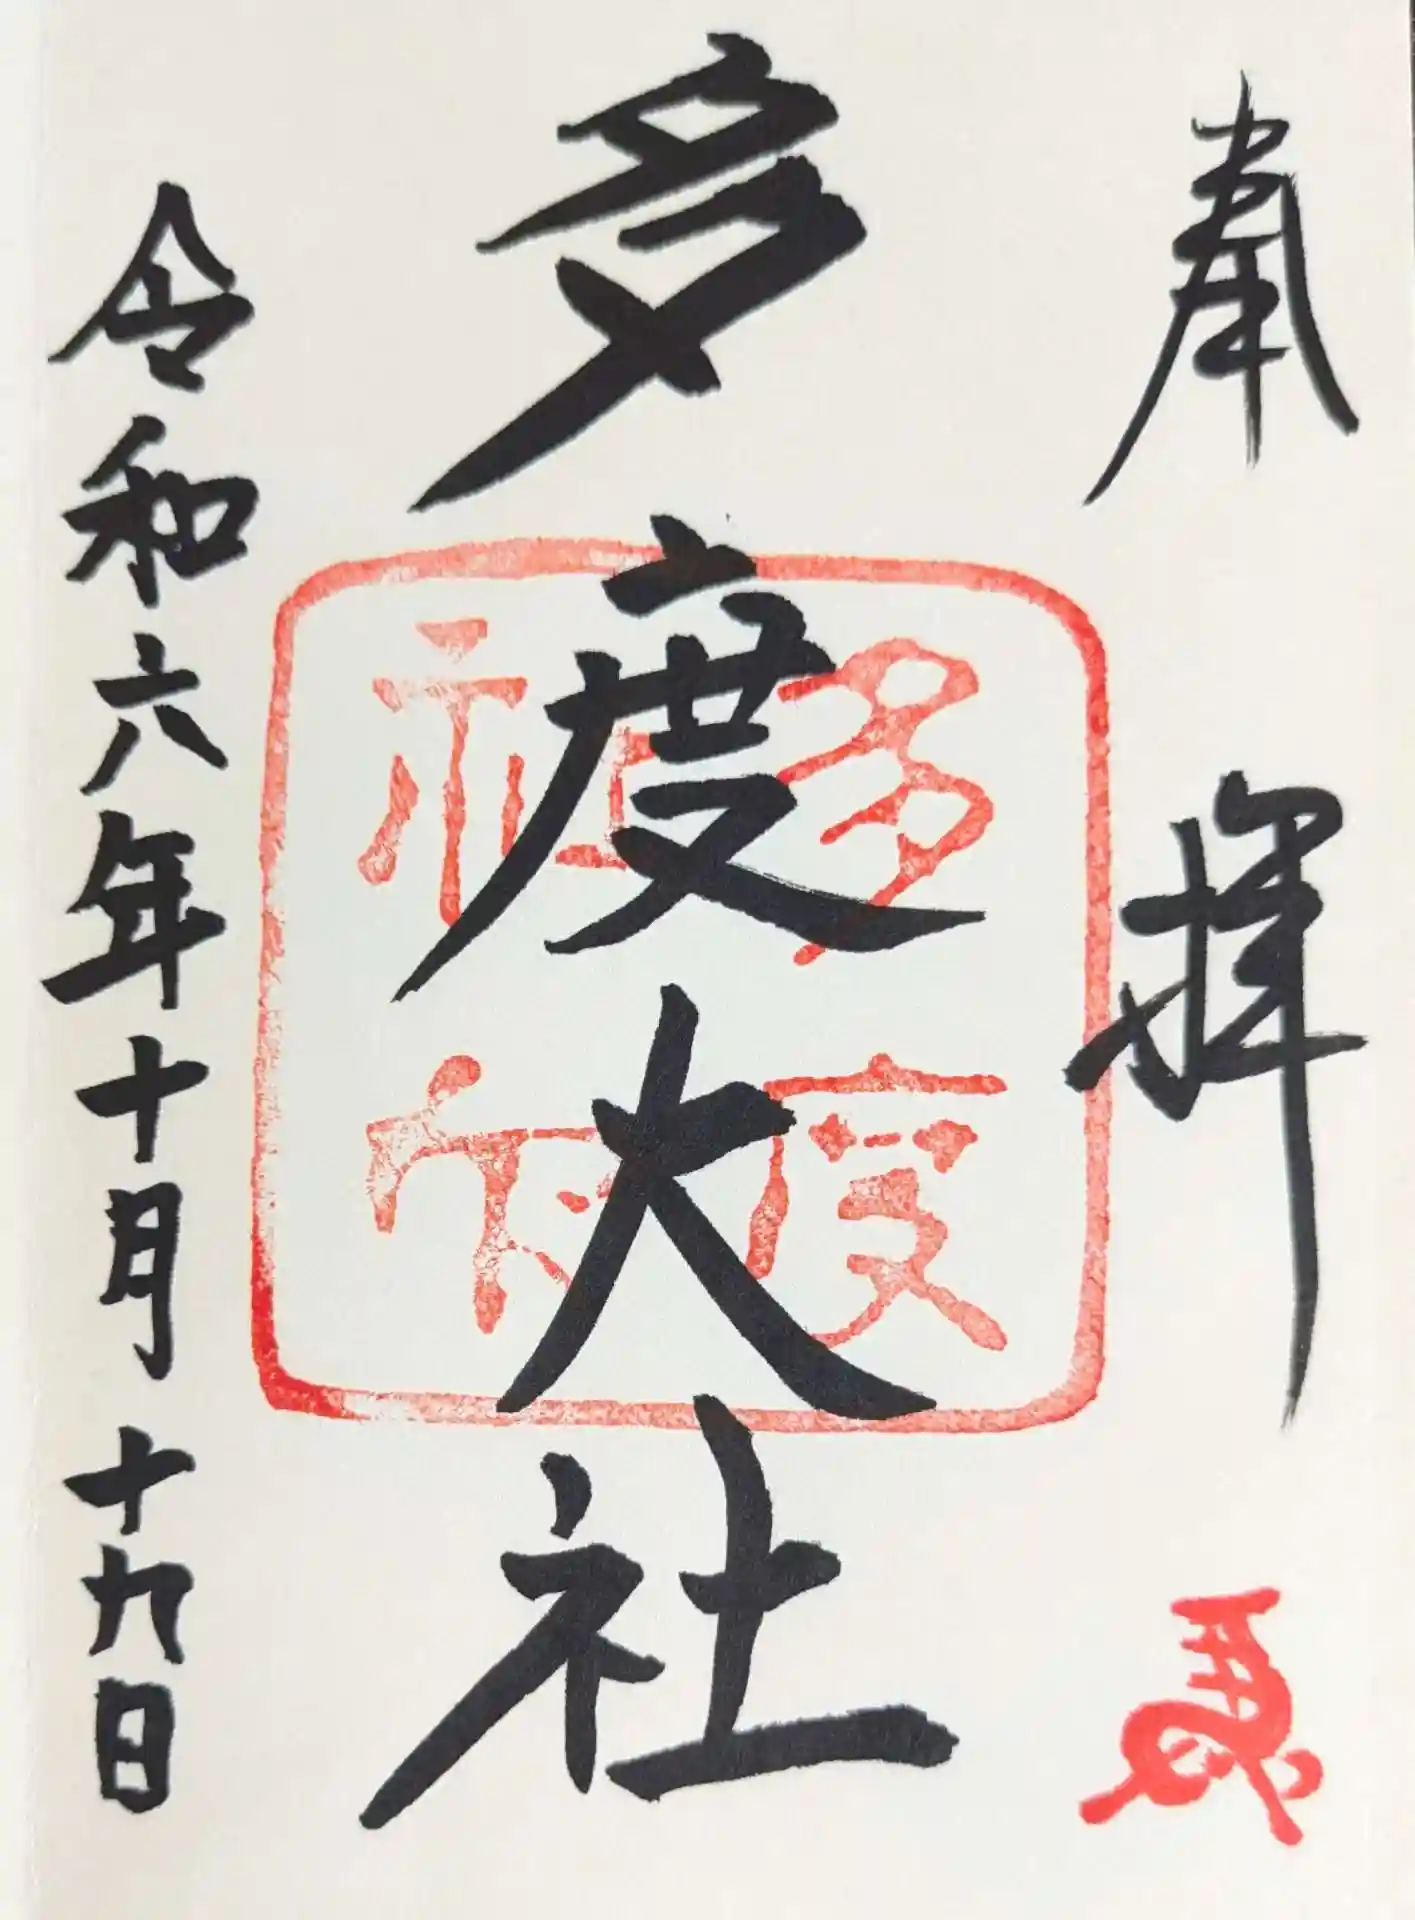 奉拝
多度大社
多度
社印
令和六年十月十九日